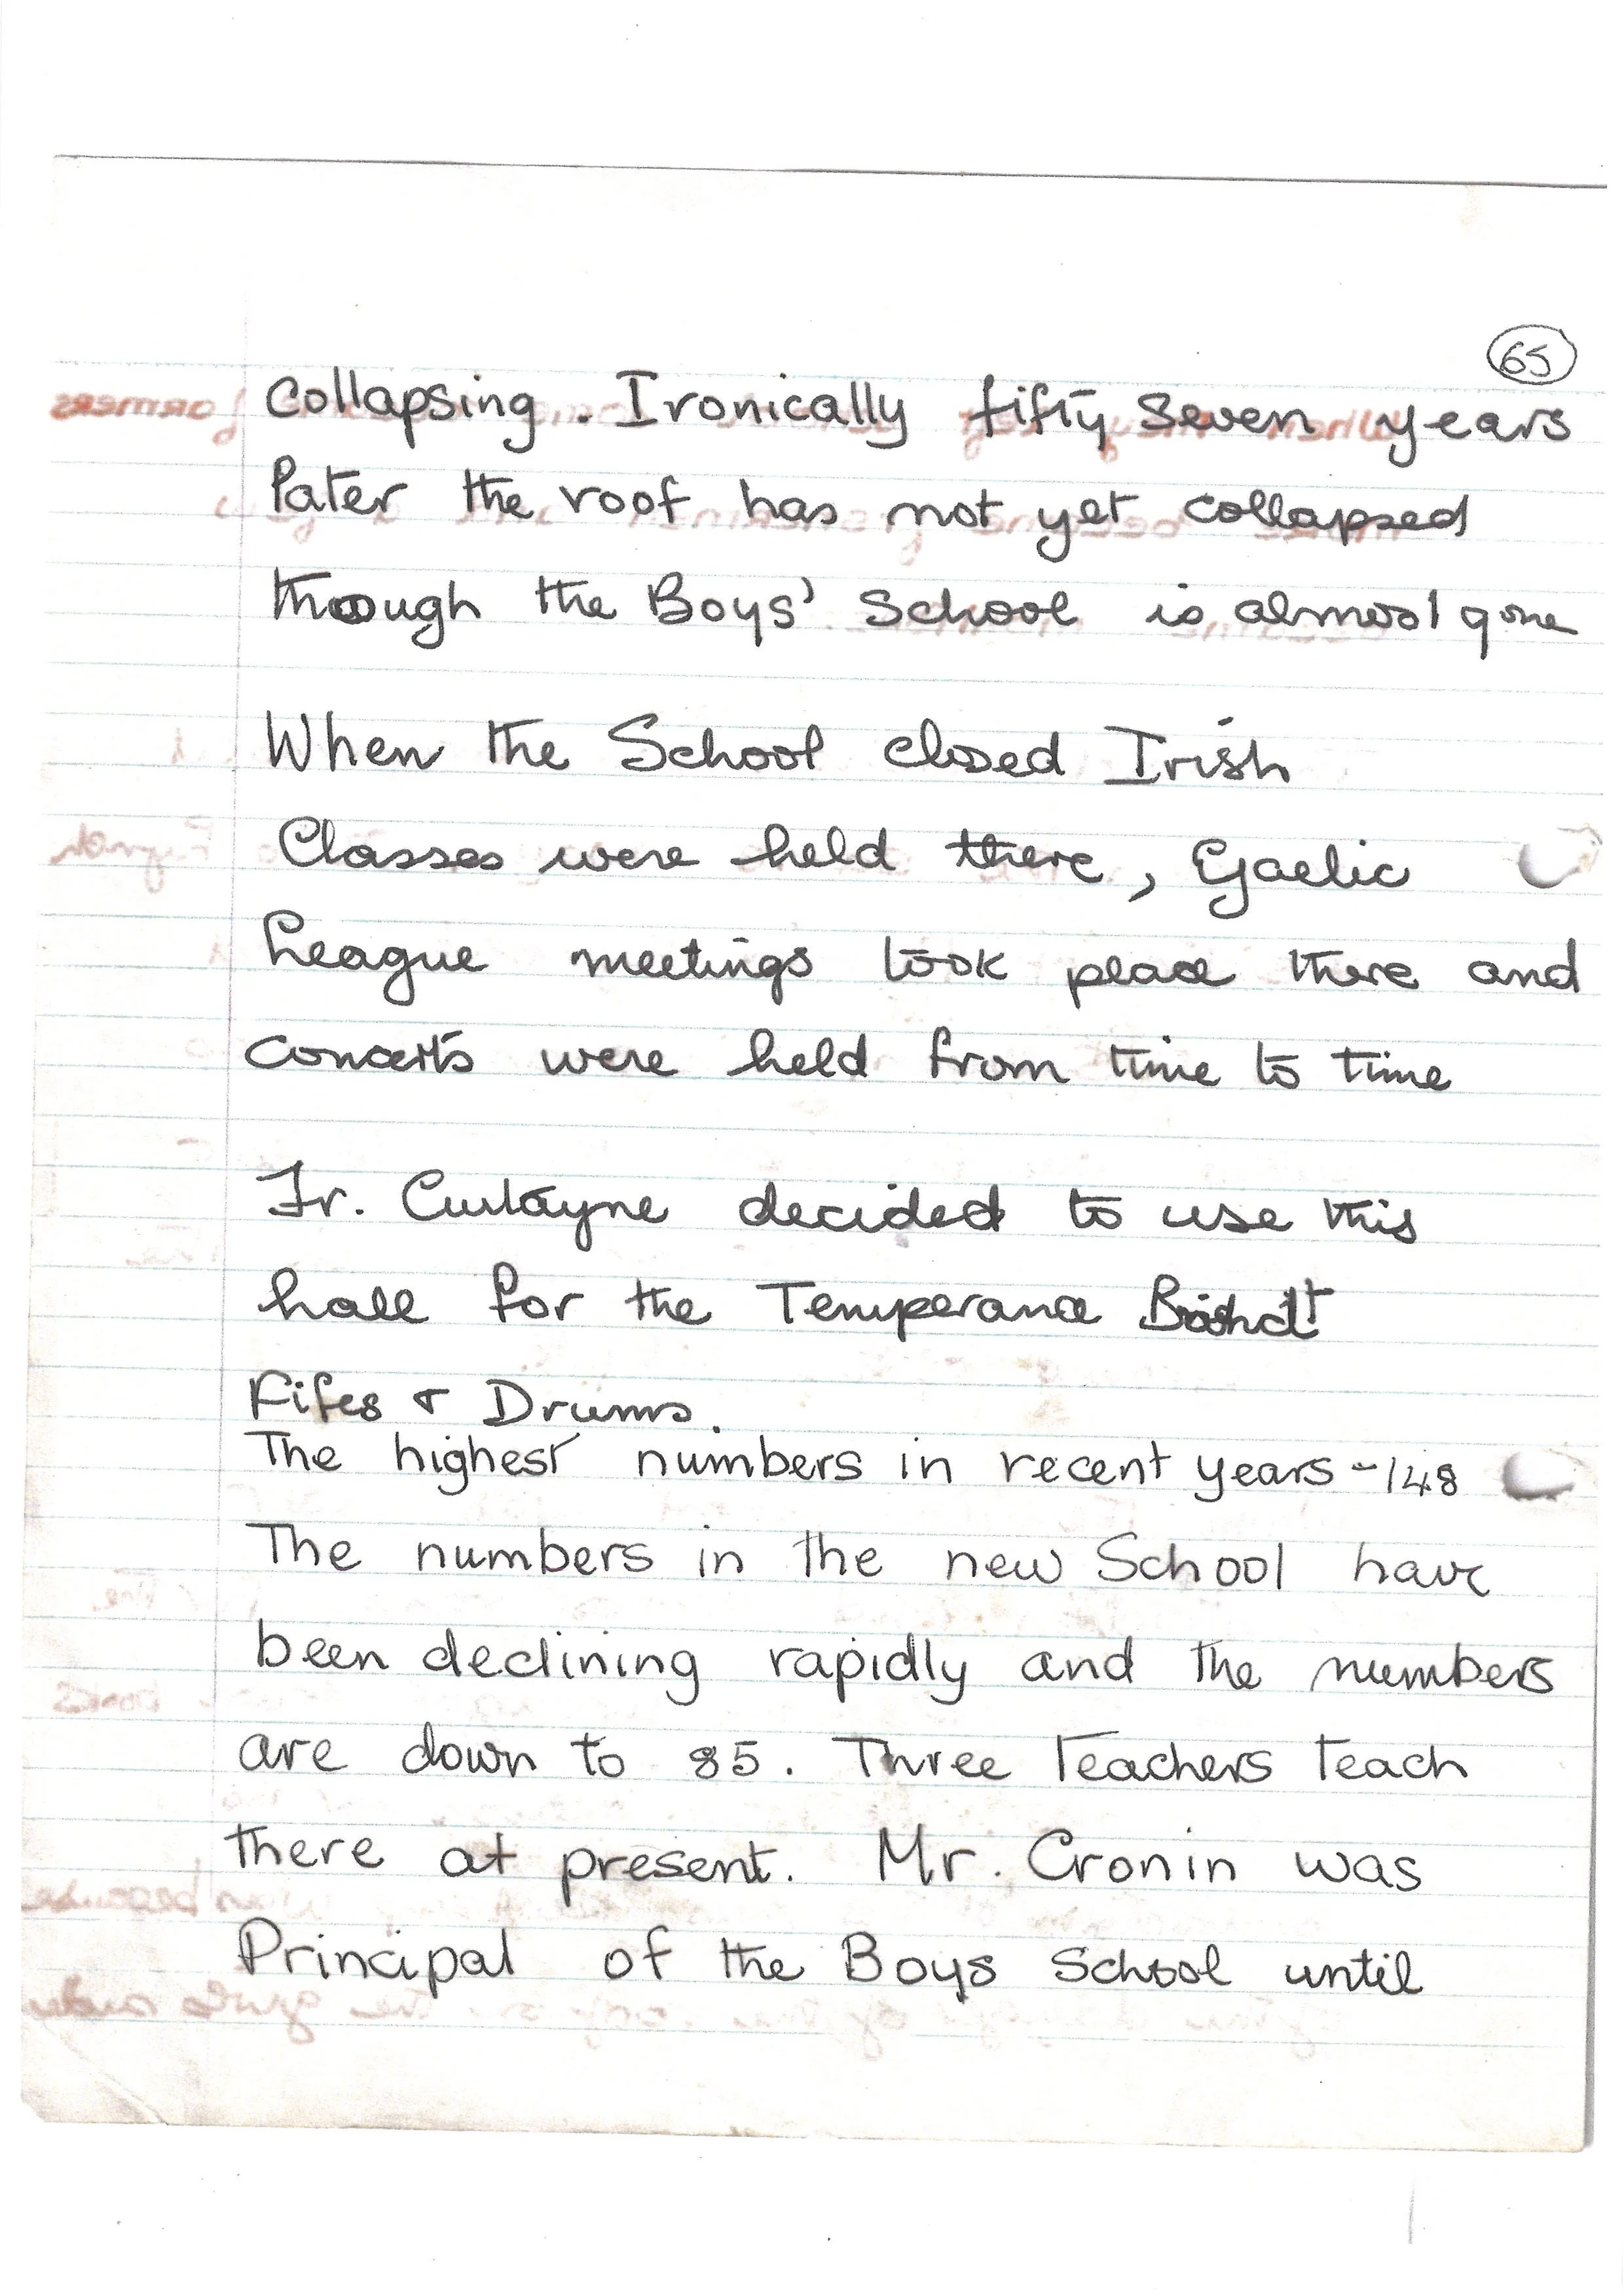 65
Collapsing. Ironically fifty seven years
later the roof has not yet collapsed
through the Boys' School is almost gone
When the School closed Irish
Classes were held there, Gaelic
League meetings took place there and
concerts were held from time to time
Fr. Curtayne decided to use this
hall for the Temperance
Fifes & Drums.
The highest numbers in recent years - 148
The numbers in the new School have
been declining rapidly and the numbers
are down to 85. Three Teachers teach
there at present. Mr. Cronin was
Principal of the Boys School until